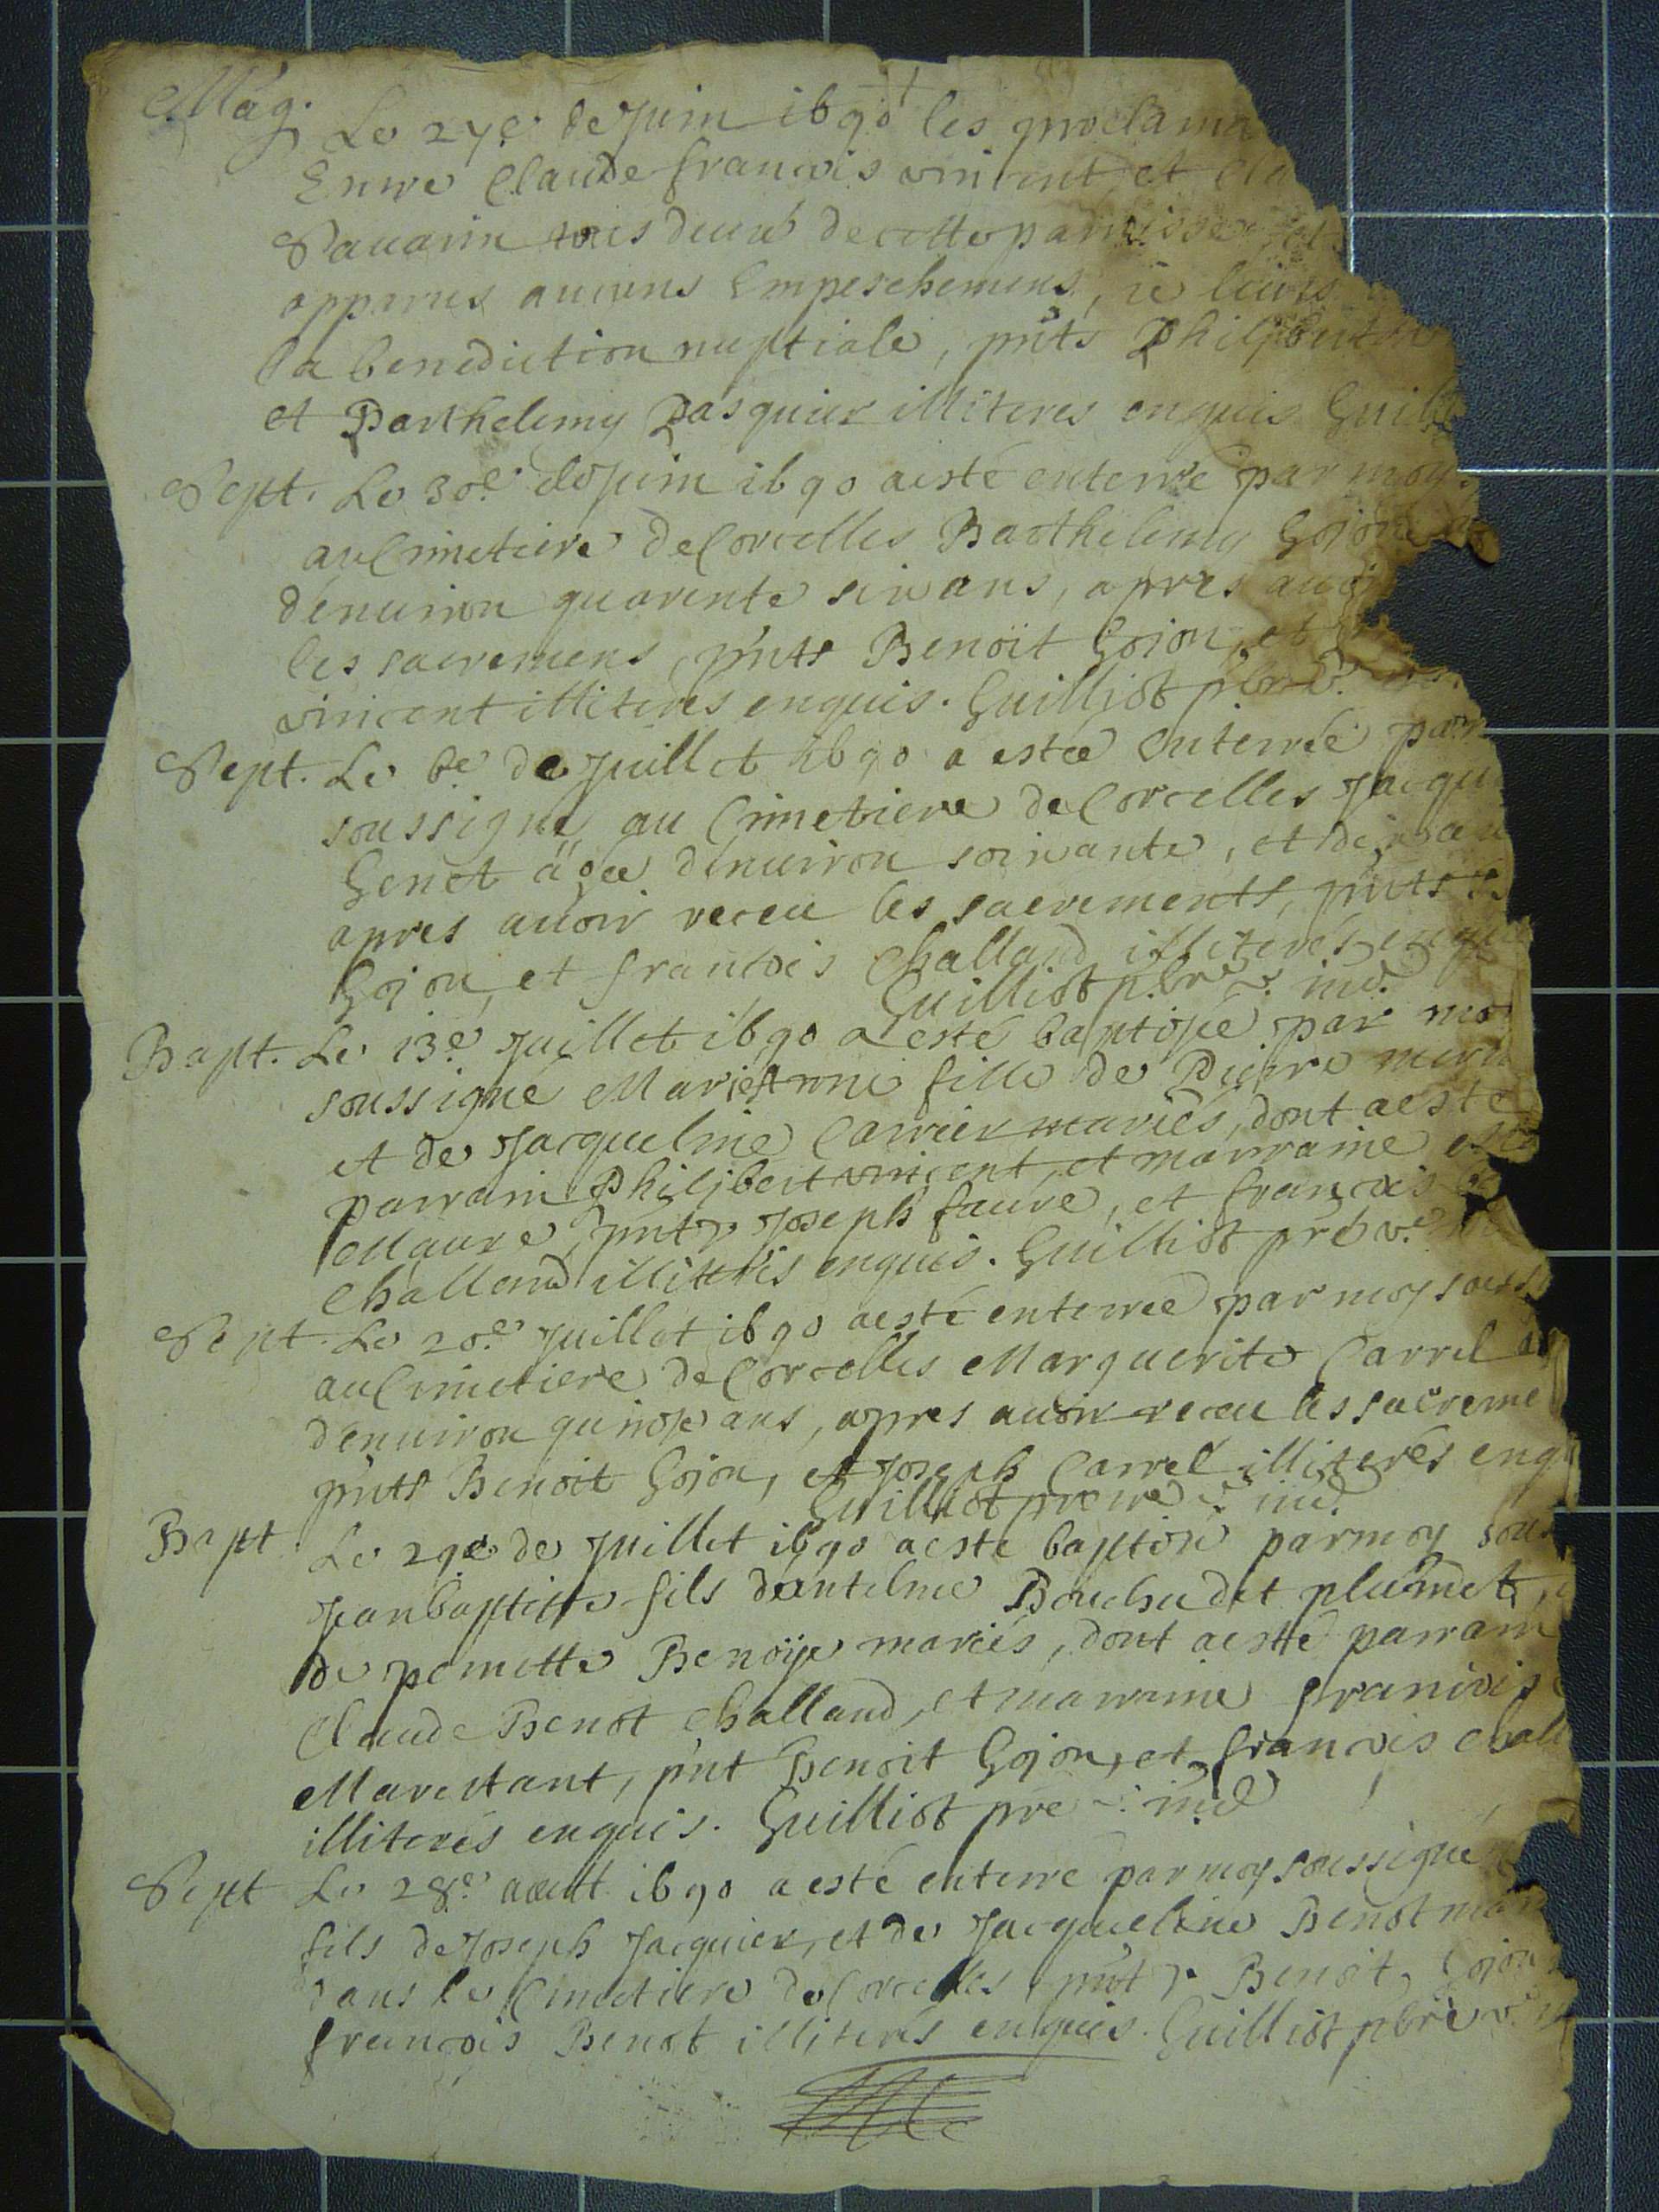 Mag. Le 27e. de Juin 1690 les proclama
Entre Claude francois vincent, et Cla
Pauarin tous deux de cette paroisse, et
apparus aucuns Empeschemens, ie leurs
la benediction nuptiale, pnts Philibert
et Barthelemy Pasquier illiteres enquis Guill
Sept. Le 30e. de Juin 1690 a esté enterré par moy
au Cimetiere de Corcelles Barthelemy Gojon
d'enuiron quarente six ans, apres auoi
les sacremens, pnts Benoit Gojon, et
vincent illiteres enquis. Guilliot pbre v.
Sept. Le 6e de Juillet 1690 a estée enterrée par
soussigné au Cimetiere de Corcelles Jacqu
Genet agée d'enuiron soixante, et dix an
apres auoir receu les sacrements, pnts
Gojon, et francois Challand illiterés enqu
Guilliot pbre v. ind.
Bapt. Le 13e Juillet 1690 a esté baptisée par mo
soussigné Marie Anne fille de Pierre
et de Jacqueline Carrier mariés, dont a esté
parrain Philibert vincent, et marraine
Maure, pnts Joseph faure, et francois
Challand illiterés enquis. Guilliot pre v.
Sept. Le 20e. Juillet 1690 a esté enterrée par moy souss
au Cimetiere de Corcelles Marguerite Carrel
d'enuiron quinze ans, apres auoir receu les sacreme
pnts Benoit Gojon, et Joseph Carrel illiterés enq
Guilliot prevre v. ind.
Bapt Le 29e de Juillet 1690 a esté baptisé par moy sous
Jean baptiste fils d'antelme Bouchu dit plumet,
de pernette Benoise mariés, dont a esté parrain
Claude Benot Challand, et marraine francoise
Marestant, pnt Benoit Gojon, et francois chall
illiterés enquis. Guilliot pre v. ind
Sept Le 28e. aoust 1690 a esté enterré par moy soussigné
fils de Joseph Jacquier, et de Jacqueline Benot mar
dans le Cimetiere de Corcelles pnts Benoit Gojon
francois Benot illiterés enquis. Guilliot pbre v.